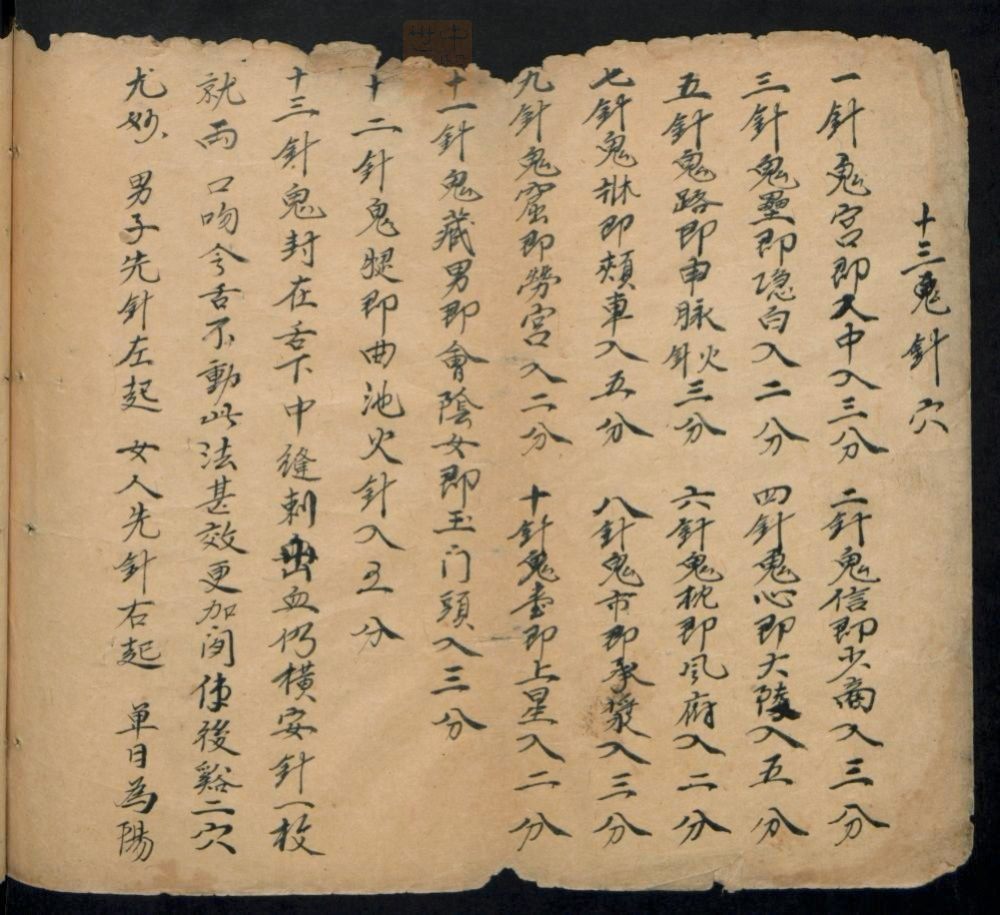 十三鬼針穴
一針鬼宮即人中入三分 二針鬼信即少商入三分
三針鬼壘即隐白入二分 四針鬼心即大陵入五分
五針鬼路即申脉火針三分 六針鬼枕即風府入二分
七針鬼牀即頰車入五分 八針鬼市即承漿入三分
九針鬼窟即勞宮入二分 十針鬼臺即上星入二分
十一針鬼藏男即會陰女即玉门頭入三分
十二針鬼腿即曲池火針入五分
十三針鬼封在舌下中縫刺出血仍橫安針一枚
就兩口吻令舌不動此法甚效更加间使後谿二穴
尤妙 男子先針左起 女人先針右起 单日為陽